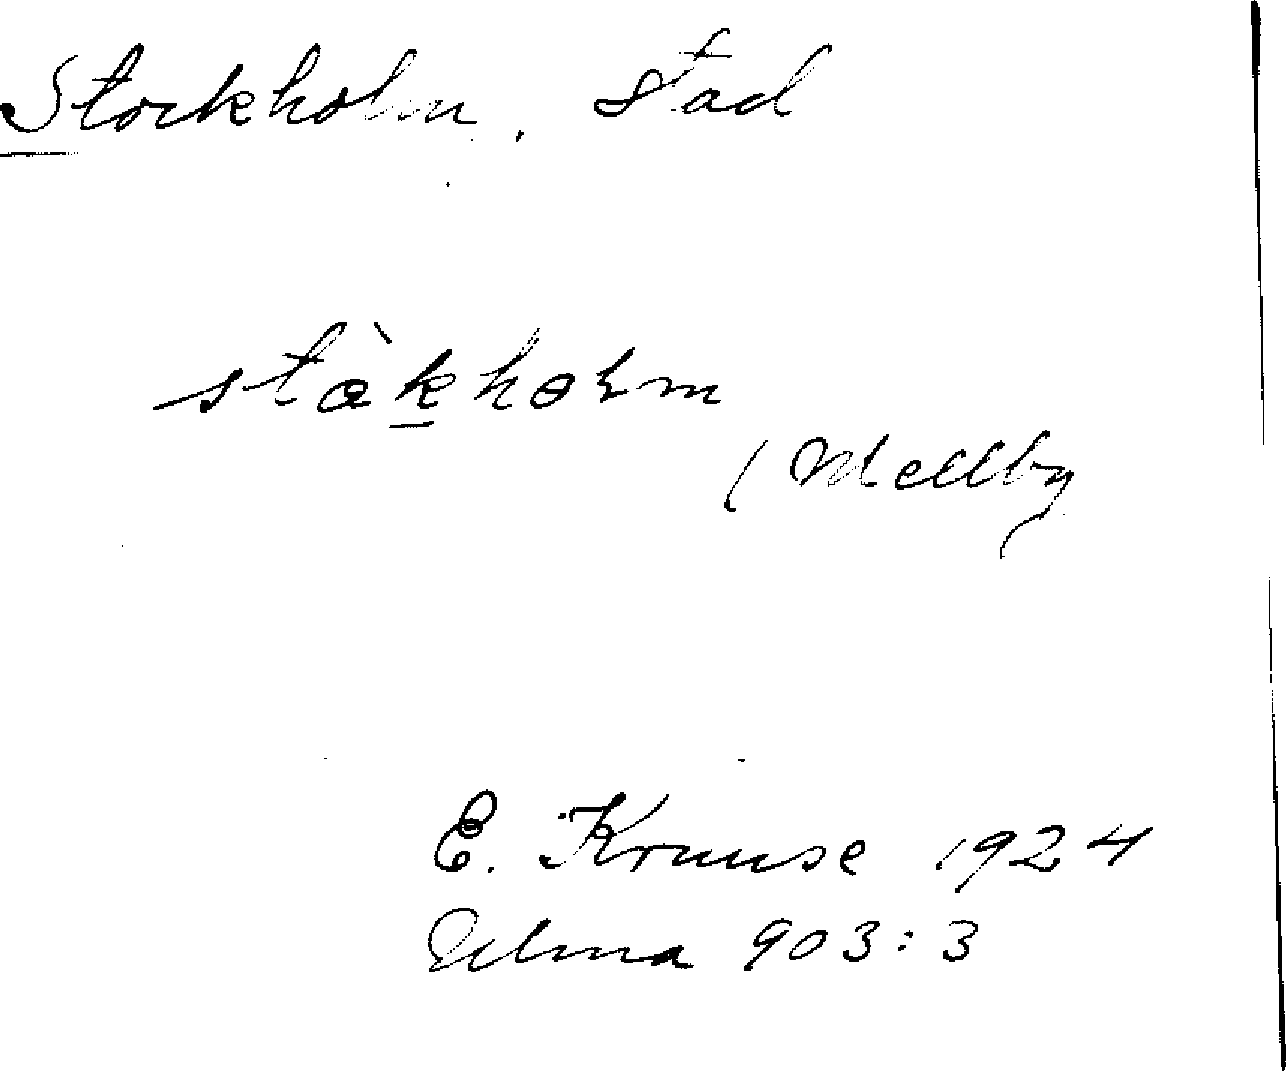 Stockholm, stad
stàkholm
(Mellby
E. Kruuse 1924
Ulma 903:3